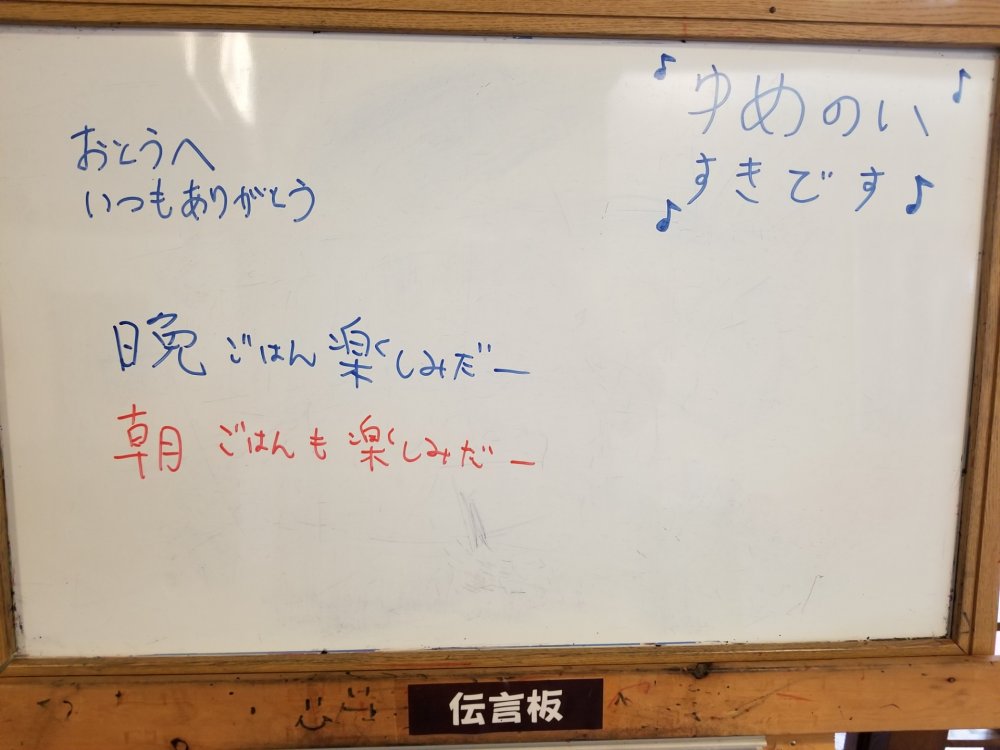 おとうへ
いつもありがとう
ゆめのい
すきです
晩ごはん楽しみだー
朝ごはんも楽しみだー
伝言板